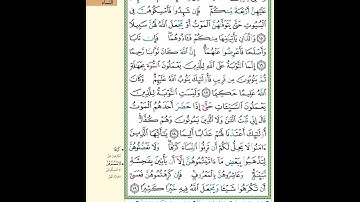 عَلَيْهِنَّ أَرْبَعَةً مِّنكُمْ فَإِن شَهِدُوا۟ فَأَمْسِكُوهُنَّ فِى
ٱلْبُيُوتِ حَتَّىٰ يَتَوَفَّىٰهُنَّ ٱلْمَوْتُ أَوْ يَجْعَلَ ٱللَّهُ لَهُنَّ سَبِيلًا
﴿١٥﴾ وَٱلَّذَانِ يَأْتِيَٰنِهَا مِنكُمْ فَـَٔاذُوهُمَا فَإِن تَابَا
وَأَصْلَحَا فَأَعْرِضُوا۟ عَنْهُمَآ إِنَّ ٱللَّهَ كَانَ تَوَّابًا رَّحِيمًا
﴿١٦﴾ إِنَّمَا ٱلتَّوْبَةُ عَلَى ٱللَّهِ لِلَّذِينَ يَعْمَلُونَ ٱلسُّوٓءَ بِجَهَٰلَةٍ
ثُمَّ يَتُوبُونَ مِن قَرِيبٍ فَأُو۟لَٰٓئِكَ يَتُوبُ ٱللَّهُ عَلَيْهِمْ وَكَانَ
ٱللَّهُ عَلِيمًا حَكِيمًا ﴿١٧﴾ وَلَيْسَتِ ٱلتَّوْبَةُ لِلَّذِينَ
يَعْمَلُونَ ٱلسَّيِّـَٔاتِ حَتَّىٰٓ إِذَا حَضَرَ أَحَدَهُمُ ٱلْمَوْتُ
قَالَ إِنِّى تُبْتُ ٱلْـَٰٔنَ وَلَا ٱلَّذِينَ يَمُوتُونَ وَهُمْ كُفَّارٌ
أُو۟لَٰٓئِكَ أَعْتَدْنَا لَهُمْ عَذَابًا أَلِيمًا ﴿١٨﴾ يَٰٓأَيُّهَا ٱلَّذِينَ
ءَامَنُوا۟ لَا يَحِلُّ لَكُمْ أَن تَرِثُوا۟ ٱلنِّسَآءَ كَرْهًا وَلَا تَعْضُلُوهُنَّ
لِتَذْهَبُوا۟ بِبَعْضِ مَآ ءَاتَيْتُمُوهُنَّ إِلَّآ أَن يَأْتِينَ بِفَٰحِشَةٍ
مُّبَيِّنَةٍ وَعَاشِرُوهُنَّ بِٱلْمَعْرُوفِ فَإِن كَرِهْتُمُوهُنَّ فَعَسَىٰٓ
أَن تَكْرَهُوا۟ شَيْـًٔا وَيَجْعَلَ ٱللَّهُ فِيهِ خَيْرًا كَثِيرًا ﴿١٩﴾